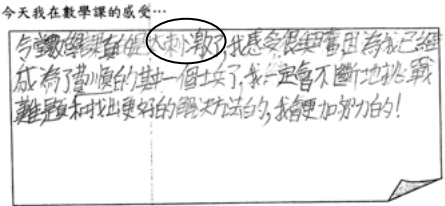 今天我在數學課的感受…
今天數學課真的是太刺激了,我感受很興奮因為我已經
成為了費順的其中一個士兵了,我一定會不斷地挑戰
難題和找出更好的解決方法的,我會更加努力的!